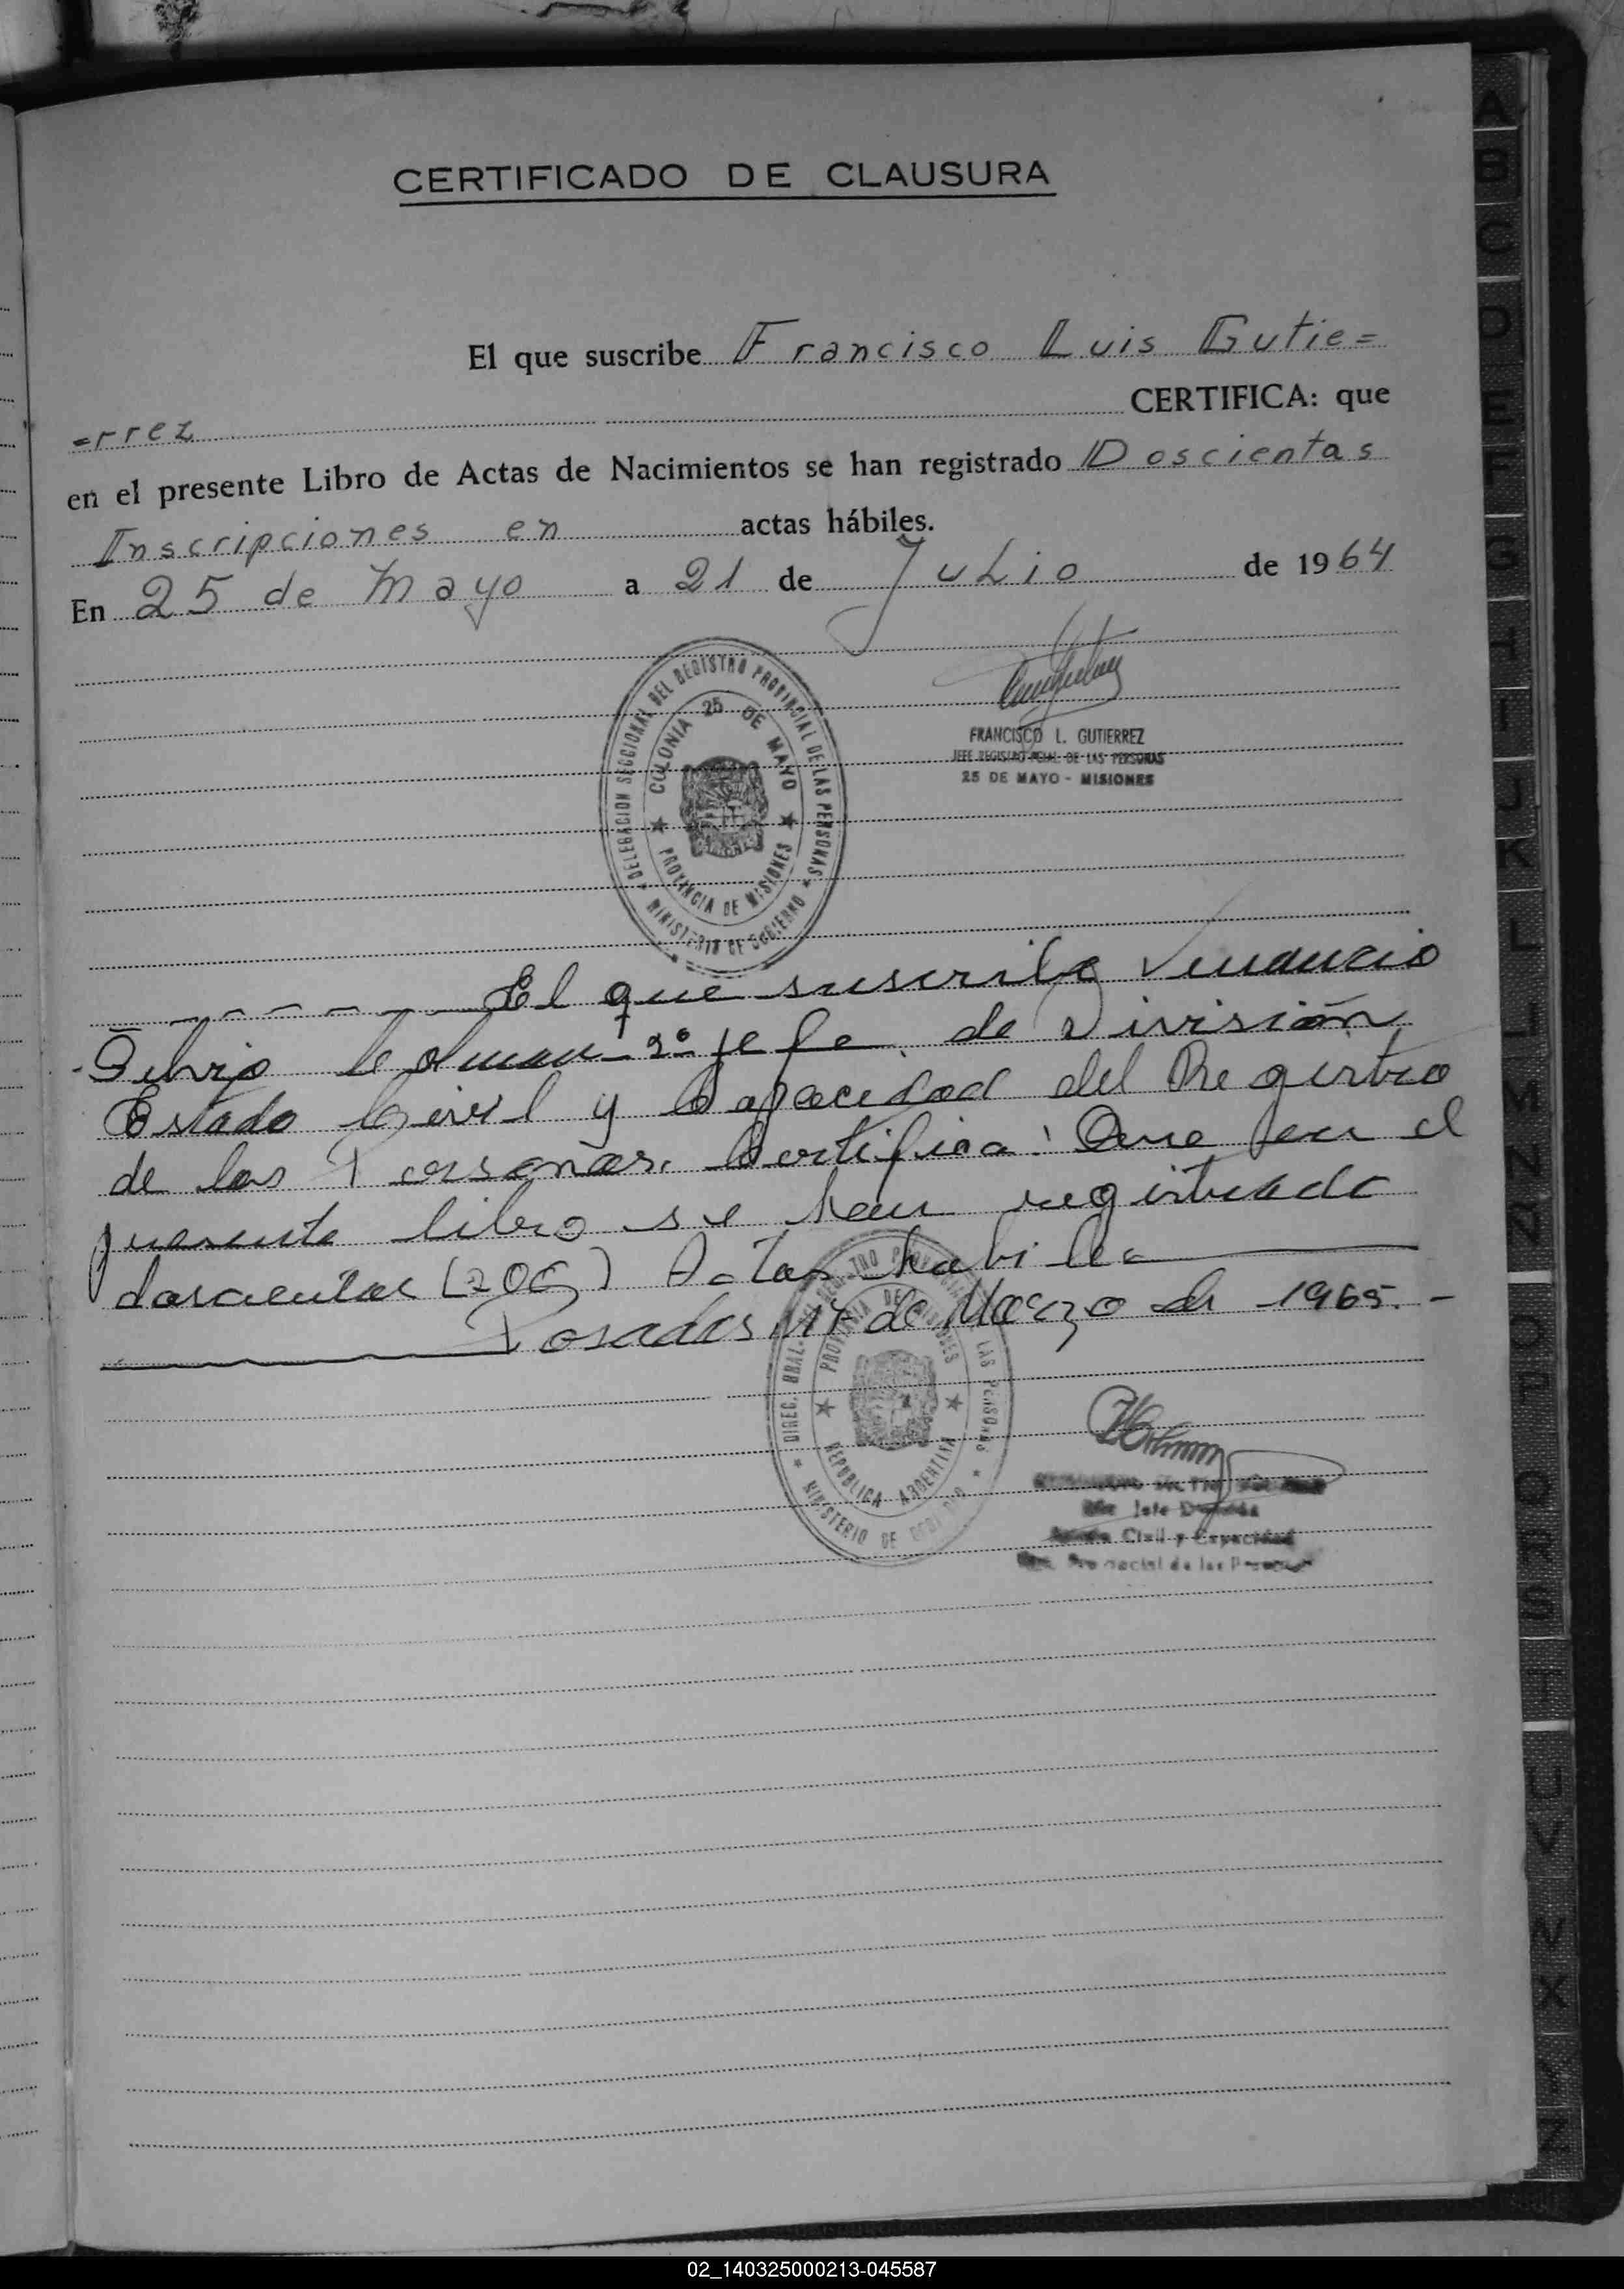 CERTIFICADO DE CLAUSURA
El que suscribe Francisco Luis Gutie=
=rrez CERTIFICA: que
en el presente Libro de Actas de Nacimientos se han registrado Doscientas
Inscripciones en actas hábiles.
En 25 de Mayo a 21 de Julio de 1964
DELEGACION SECCIONAL DEL REGISTRO PROVINCIAL DE LAS PERSONAS
MINISTERIO DE GOBIERNO
COLONIA 25 DE MAYO
PROVINCIA DE MISIONES
FRANCISCO L. GUTIERREZ
JEFE REGISTRO PCIAL. DE LAS PERSONAS
25 DE MAYO - MISIONES
El que suscribe Venancio
Silvio Colman 2º jefe de División
Estado Civil y Capacidad del Registro
de las Personas. Certifica: Que en el
presente libro se han registrado
doscientas (200) Actas habiles
Posadas 17 de Marzo de 1965.-
DIREC. GRAL. DEL REGISTRO PROVINCIAL DE LAS PERSONAS
MINISTERIO DE GOBIERNO
PROVINCIA DE MISIONES
REPUBLICA ARGENTINA
Jefe
Civil y Capacidad
Provincial de las Personas
A
B
C
D
E
F
G
H
I
J
K
L
LL
M
N
Ñ
O
P
Q
R
S
T
U
V
W
X
Y
Z
02_140325000213-045587